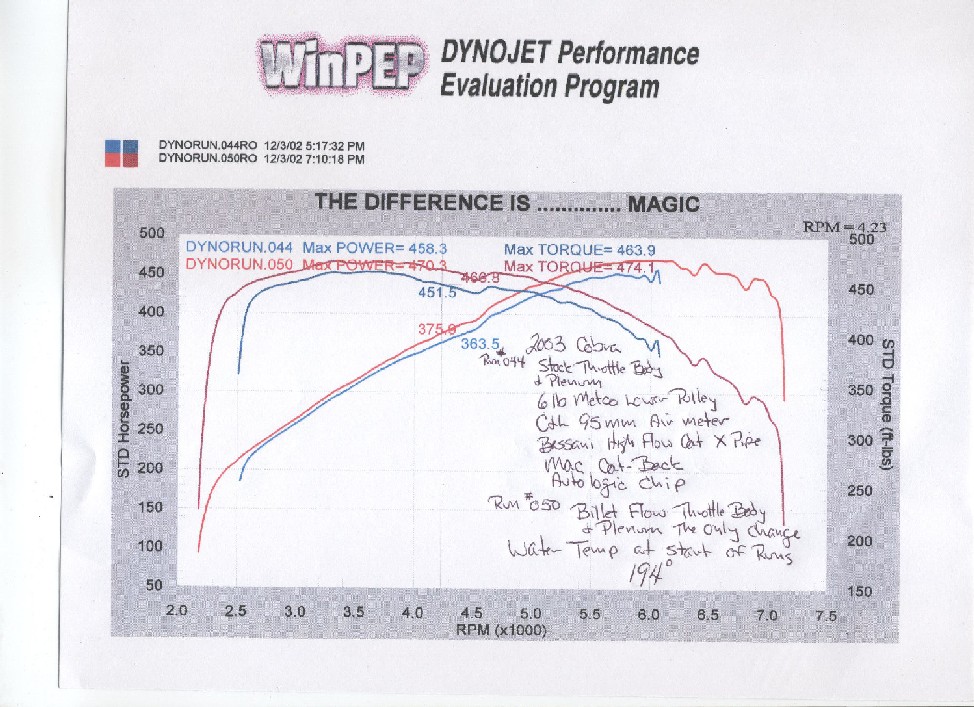 WinPEP DYNOJET Performance
Evaluation Program
DYNORUN.044RO 12/3/02 5:17:32 PM
DYNORUN.050RO 12/3/02 7:10:18 PM
THE DIFFERENCE IS .............. MAGIC
RPM = 4.23
DYNORUN.044 Max POWER= 458.3 Max TORQUE= 463.9
DYNORUN.050 Max POWER= 470.3 Max TORQUE= 474.1
500
450
400
350
300
250
200
150
100
50
STD Horsepower
466.8
451.5
375.9
363.5
2003 Cobra
Run #044 Stock Throttle Body
& Plenum
6 lb Metco Lower Pulley
95 mm Air meter
Bassani High Flow Cat X Pipe
Mac Cat-Back
Autologic Chip
Run #050 Billet Flow Throttle Body
& Plenum The only change
Water Temp at start of Runs
194°
500
450
400
350
300
250
200
150
STD Torque (ft-lbs)
2.0 2.5 3.0 3.5 4.0 4.5 5.0 5.5 6.0 6.5 7.0 7.5
RPM (x1000)